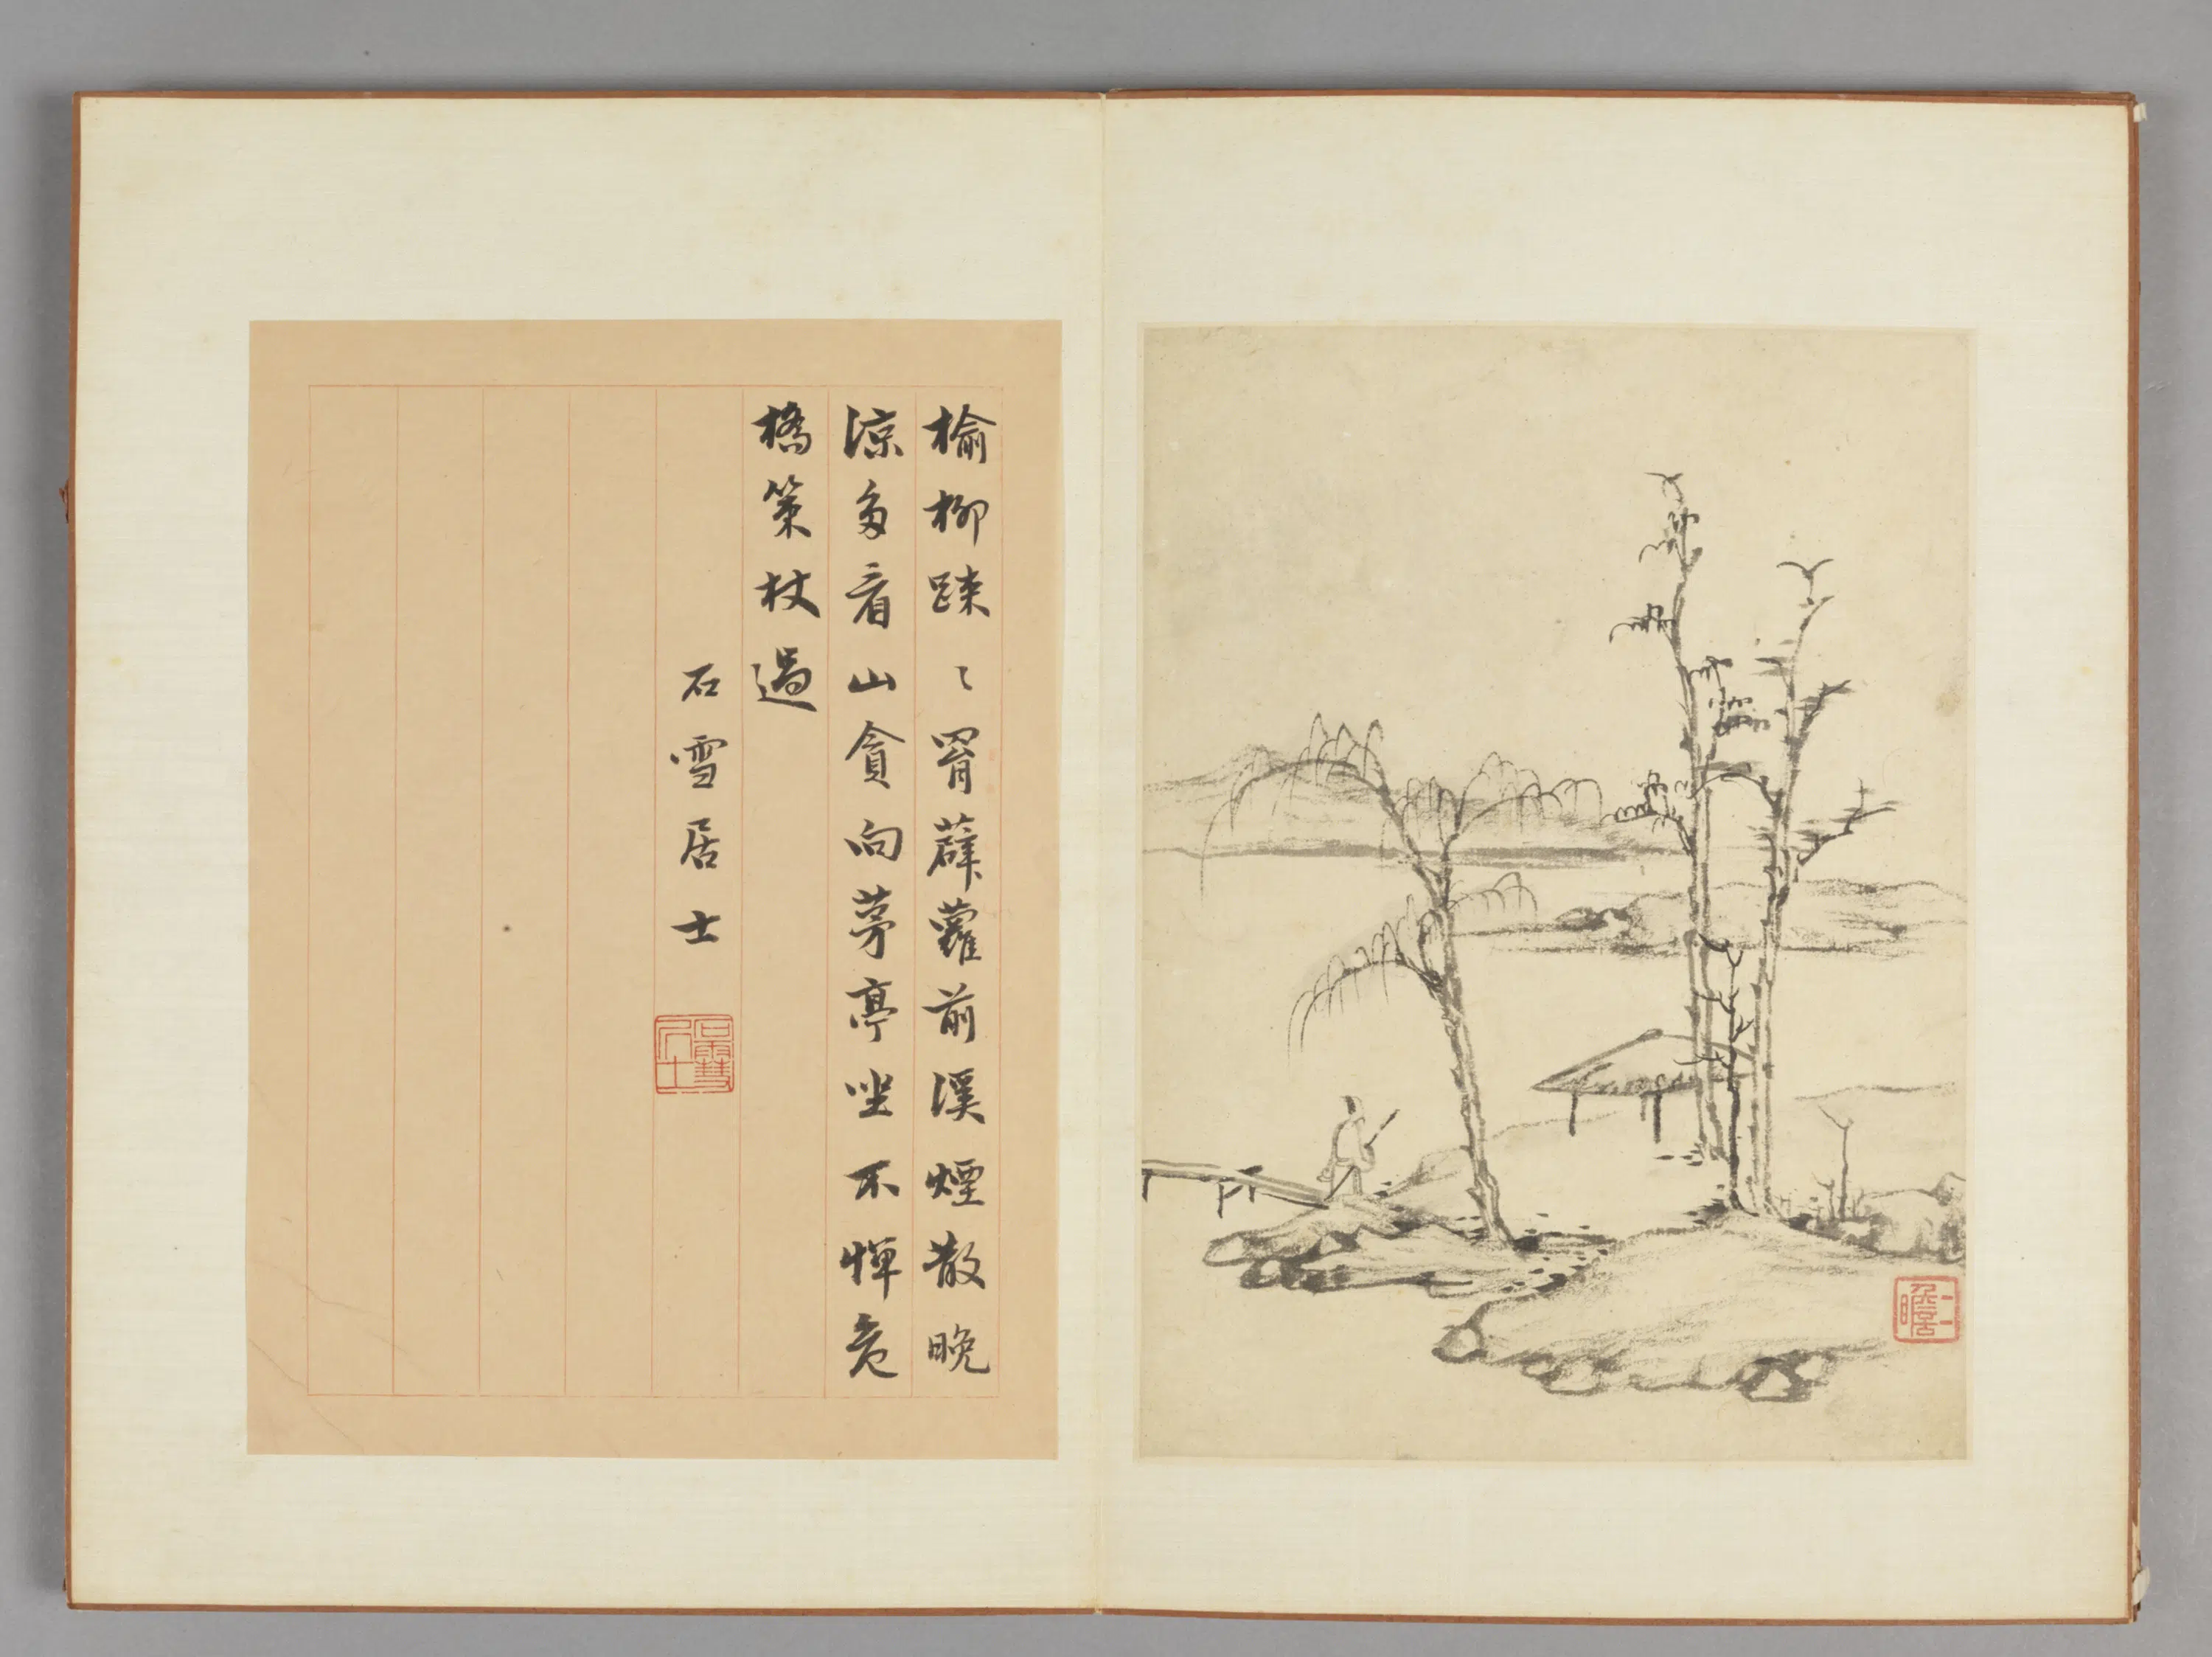 榆柳踈〻罥薜蘿前溪煙散晚
涼多看山貪向茅亭坐不憚危
橋策杖過
石雪居士
石雪居士